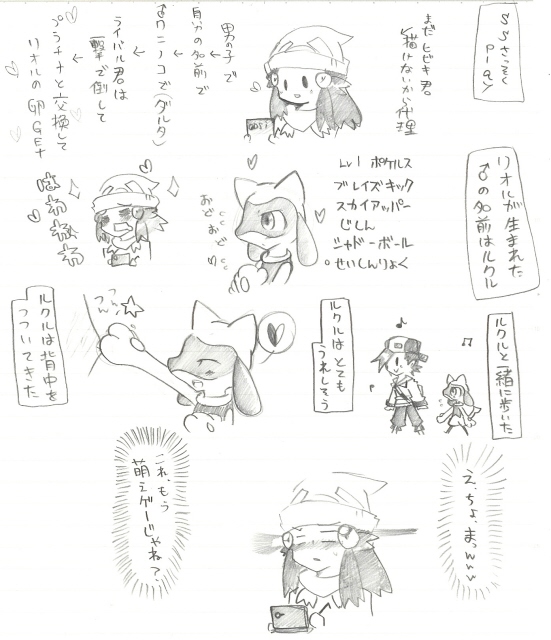 SSさっそく
Play
まだヒビキ君
描けないから代理
男の子で
自分の名前で
←
♂ワニノコで(ダルタ)
←
ライバル君は
一撃で倒して
←
プラチナと交換して
リオルの卵GET
リオルが生まれた
♂の名前はルクル
Lv1 ポケルス
ブレイズキック
スカイアッパー
じしん
シャドーボール
せいしんりょく
おど
おど
はわわわわ
ルクルと一緒に歩いた
ルクルはとても
うれしそう
つん
つん
ルクルは背中を
つついてきた
え、ちょ、まっww
これ、もう
萌えゲーじゃね?